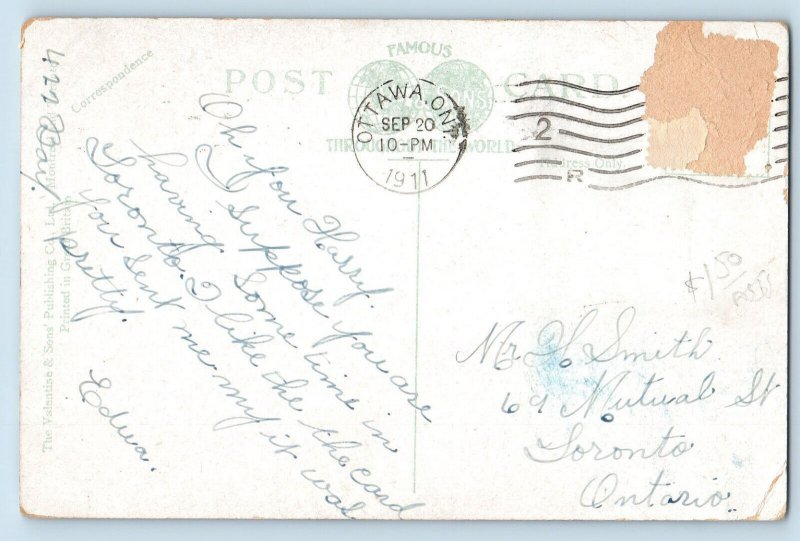 POST CARD
FAMOUS
THROUGHOUT THE WORLD
Correspondence
Address Only.
The Valentine & Sons' Publishing Co., Ltd.
Printed in Great Britain
OTTAWA, ONT
SEP 20
10-PM
1911
2
R
Oh you Harry.
I suppose you are
having some time in
Toronto. I like the the card
You sent me my it was
pretty.
Edna.
$1.50
Mr H. Smith
69 Mutual St
Toronto
Ontario.